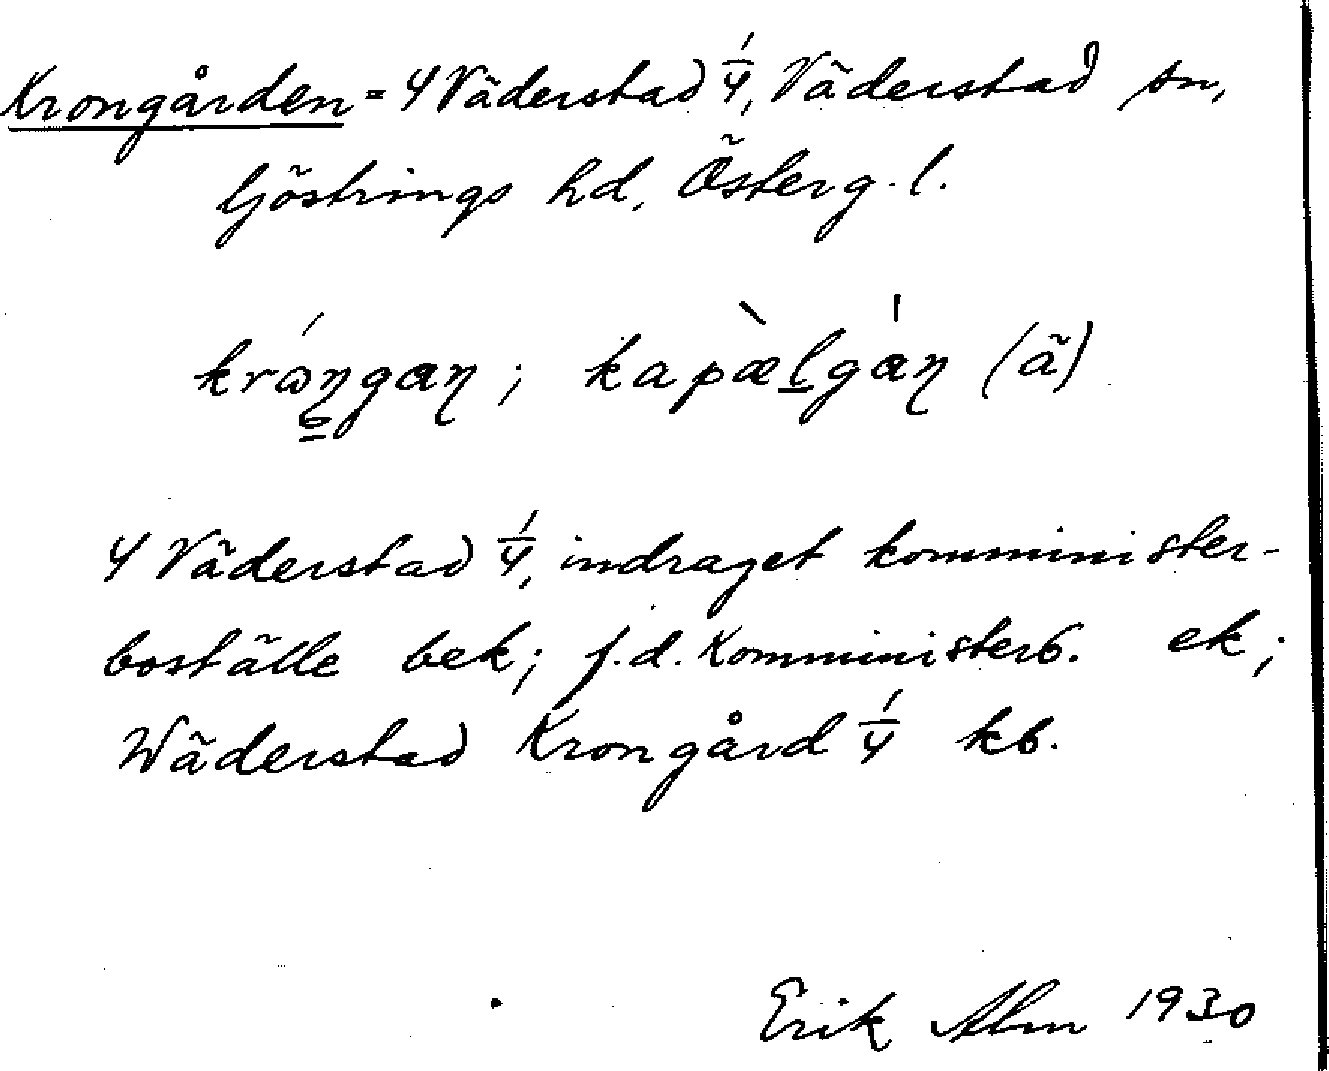 Krongården = 4 Väderstad 1/4, Väderstad sn,
Göstrings hd, Österg. l.
krɷ́ŋgaɳ; kapæ̀lgáɳ (ã)
4 Väderstad 1/4, indraget komminister-
boställe bek; f.d. Komministerb. ek;
Wäderstad Krongård 1/4 kb.
Erik Alm 1930